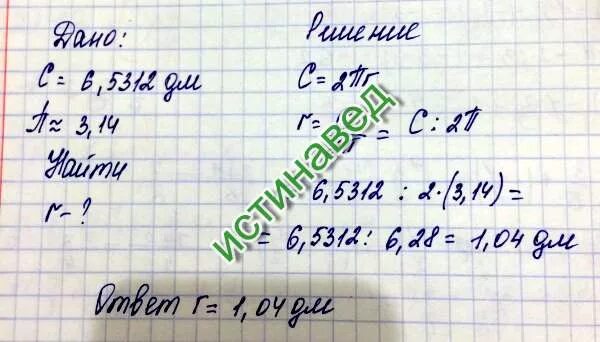 Дано:
C = 6,5312 дм
П ≈ 3,14
Найти
r - ?
Решение
C = 2Пr
r = = C : 2П
6,5312 : 2·(3,14) =
= 6,5312 : 6,28 = 1,04 дм
Ответ r = 1,04 дм
истинавед